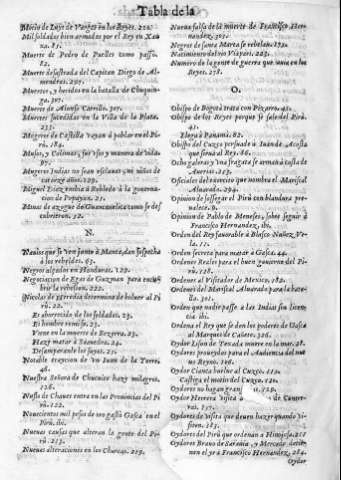 Tabla de la
Motin de Luys de Vargas en los Reyes.
Mil soldados bien armados por el Rey en Xau
xa. 83.
Muerte de Pedro de Puelles como passo.
82.
Muerte desastrada del Capitan Diego de Al-
mendras. 297.
Muertos, y heridos en la batalla de Chuquin-
ga. 307.
Muerte de Alonso Carrillo.
Muertes sucedidas en la Villa de la Plata.
Mugeres de Castilla vayan a poblar en el Pi-
ru. 184.
Musos, y Colimas, sus vsos y manera de vida.
Mugeres Indias no sean visitadas, ni niños de
catorze años.
Miguel Diez embia a Robledo a la gouerna-
cion de Popayan.
Minas de azogue de Guancabelica como se des
cubrieron. 52.
N.
Nauios que se ven junto a Manta, dan sospecha
a los rebeldes. 63.
Negros alçados en Honduras. 122.
Negociacion de Egas de Guzman para encu-
brir la rebelion. 222.
Nicolas de Heredia determina de boluer al Pi
ru. 22.
Es aborrecido de los soldados. 23.
El hombre remisso. 23.
Viene en la muerte de Beçerra. 23.
Hazy matar a Saauedra. 24.
Desamparanle los suyos. 25.
Notable traycion de vn Iuan de la Torre.
46.
Nuestra Señora de Chucuito hazy milagros.
Nuflo de Chaues entra en las Prouincias del Pi
ru. 122.
Nouecientos mil pesos de oro gastò Gasca en el
Piru. ibi.
Nueuas causas que alteran la gente del Pi-
ru. 213.
Nueuas alteraciones en los Charcas. 219.
Nueua falsa de la muerte de Francisco Her-
nandez. 303.
Negros de santa Marta se rebelan.
Nacimiento del rio Viapari. 223.
Numero de la gente de guerra que auia en los
Reyes. 278.
O.
Obispo de Bogotà trata con Piçarro. 41.
Obispo de los Reyes porque se sale del Piru.
41.
Llega a Panama. 42.
Obispo del Cuzco persuade a Iuan de Acosta
que sirua al Rey. 66.
Ocho galeras y vna fragata se arman a costa de
Aueria.
Oficiales del exercito que nombra el Mariscal
Aluarado. 294.
Opinion de sossegar el Piru con blandura pre-
ualece. 8.
Opinion de Pablo de Meneses, sobre seguir a
Francisco Hernandez, ibi.
Orden del Rey fauorable a Blasco Nuñez Ve-
la. 11.
Orden secreta para matar a Gasca. 44.
Ordenes Reales para el buen gouierno del Pi-
ru. 128.
Ordenes al Visitador de Mexico. 182.
Ordenes del Mariscal Aluarado para la bata-
lla. 301.
Orden que nadie passe a las Indias sin licen-
cia. ibi.
Ordena el Rey que se den los poderes de Gasca
al Marques de Cañete. 326.
Oydor Lison de Texada muere en la mar. 28.
Oydores proueydos para el Audiencia del nue
uo Reyno. 106.
Oydor Cianca buelue al Cuzco. 119.
Castiga el motin del Cuzco. 120.
Oydores no hagan gran
Oydor Herrera visita à de Conser-
uas. 157.
Oydores de visita que deuen hazer quando vi-
siten. 183.
Oydores del Piru que ordenan a Hinojosa. 217
Oydores Brauo de Sarauia, y Mercado detie-
nen el yr a Francisco Hernandez. 284.
Oydor